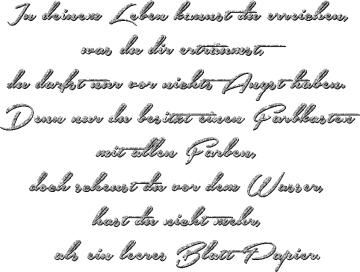 In deinem Leben kannst du erreichen,
was du dir erträumst,
du darfst nur vor nichts Angst haben.
Denn nur du besitzt einen Farbkasten
mit allen Farben,
doch scheust du vor dem Wasser,
hast du nicht mehr,
als ein leeres Blatt Papier.